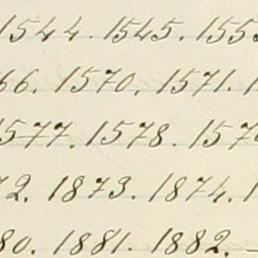 1544. 1545. 155
66. 1570. 1571.
1577. 1578. 157
72. 1873. 1874.
80. 1881. 1882. —